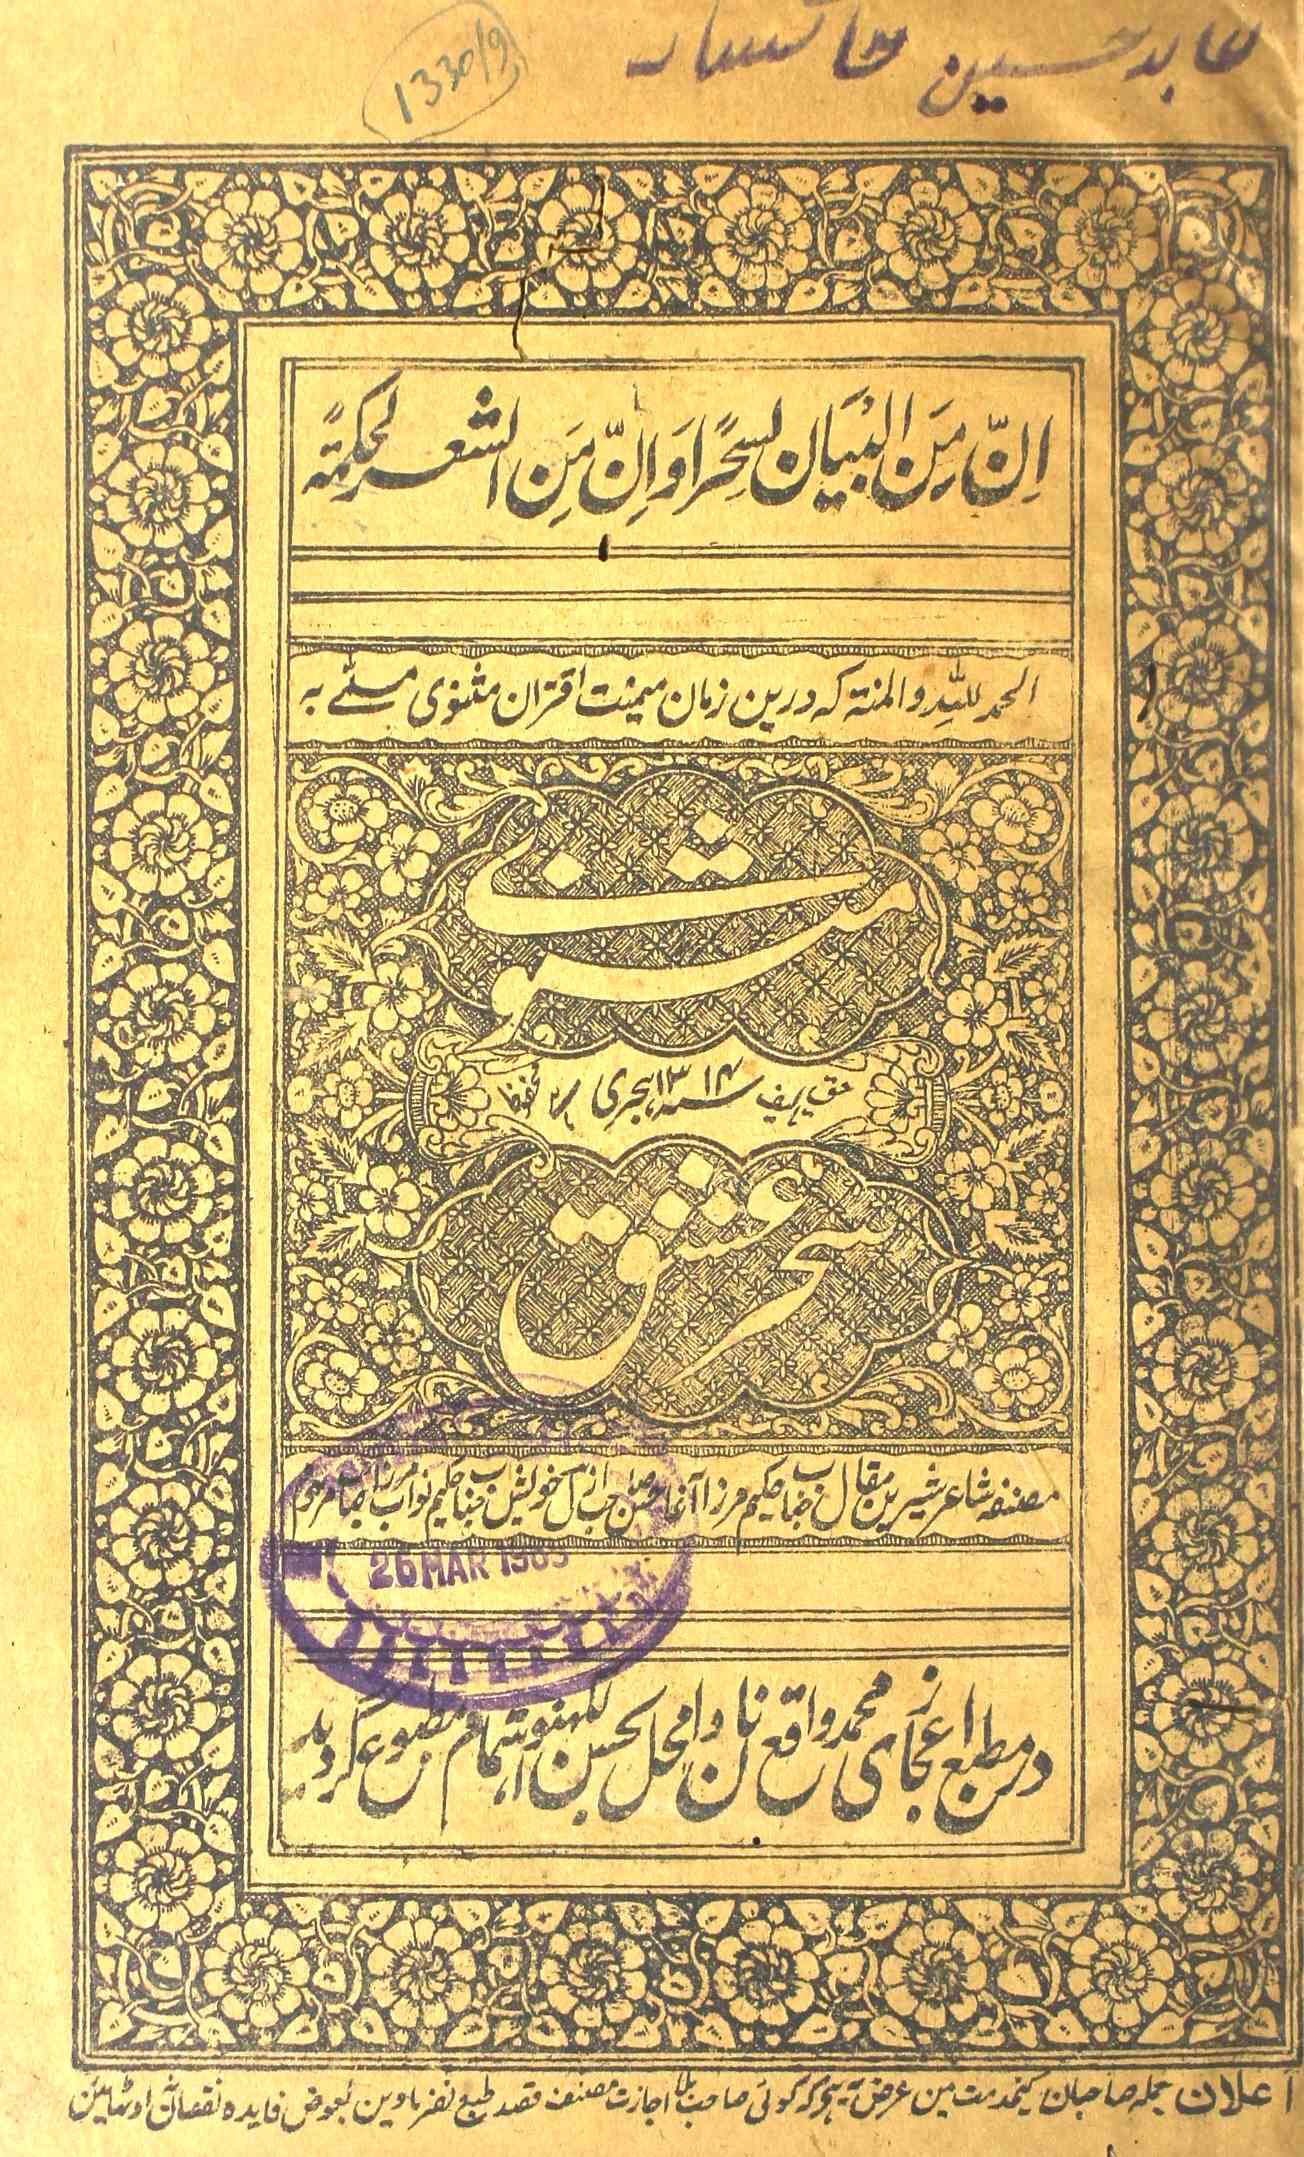 عابد حسین
1330/9
اِنّ مِنَ البَیَان لسِحًرا وَاِنّ مِنَ الشعر لحکمتہً
الحمد للہِ والمنتہ کہ درین زمان میمنت اقتران مثنوی مسمے بہ
مثنوی
سنہ ۱۳۱۴ ہجری
سحر عشق
مصنفہ شاعر شیرین مقال جناب حکیم مرزا آغا حسن صاحب ازل خویش جناب حکیم نواب مرزا صاحب مرحوم
26 MAR 19
در مطبع اعجاز محمدی واقع نادان محل لکہنو باہتمام مطبوع گردید
اعلان جملہ صاحبان کیخدمت مین عرض یہ ہیکہ کوئی صاحب بلا اجازت مصنف قصد طبع نفرماوین بعوض فایدہ نقصان اوٹہائین